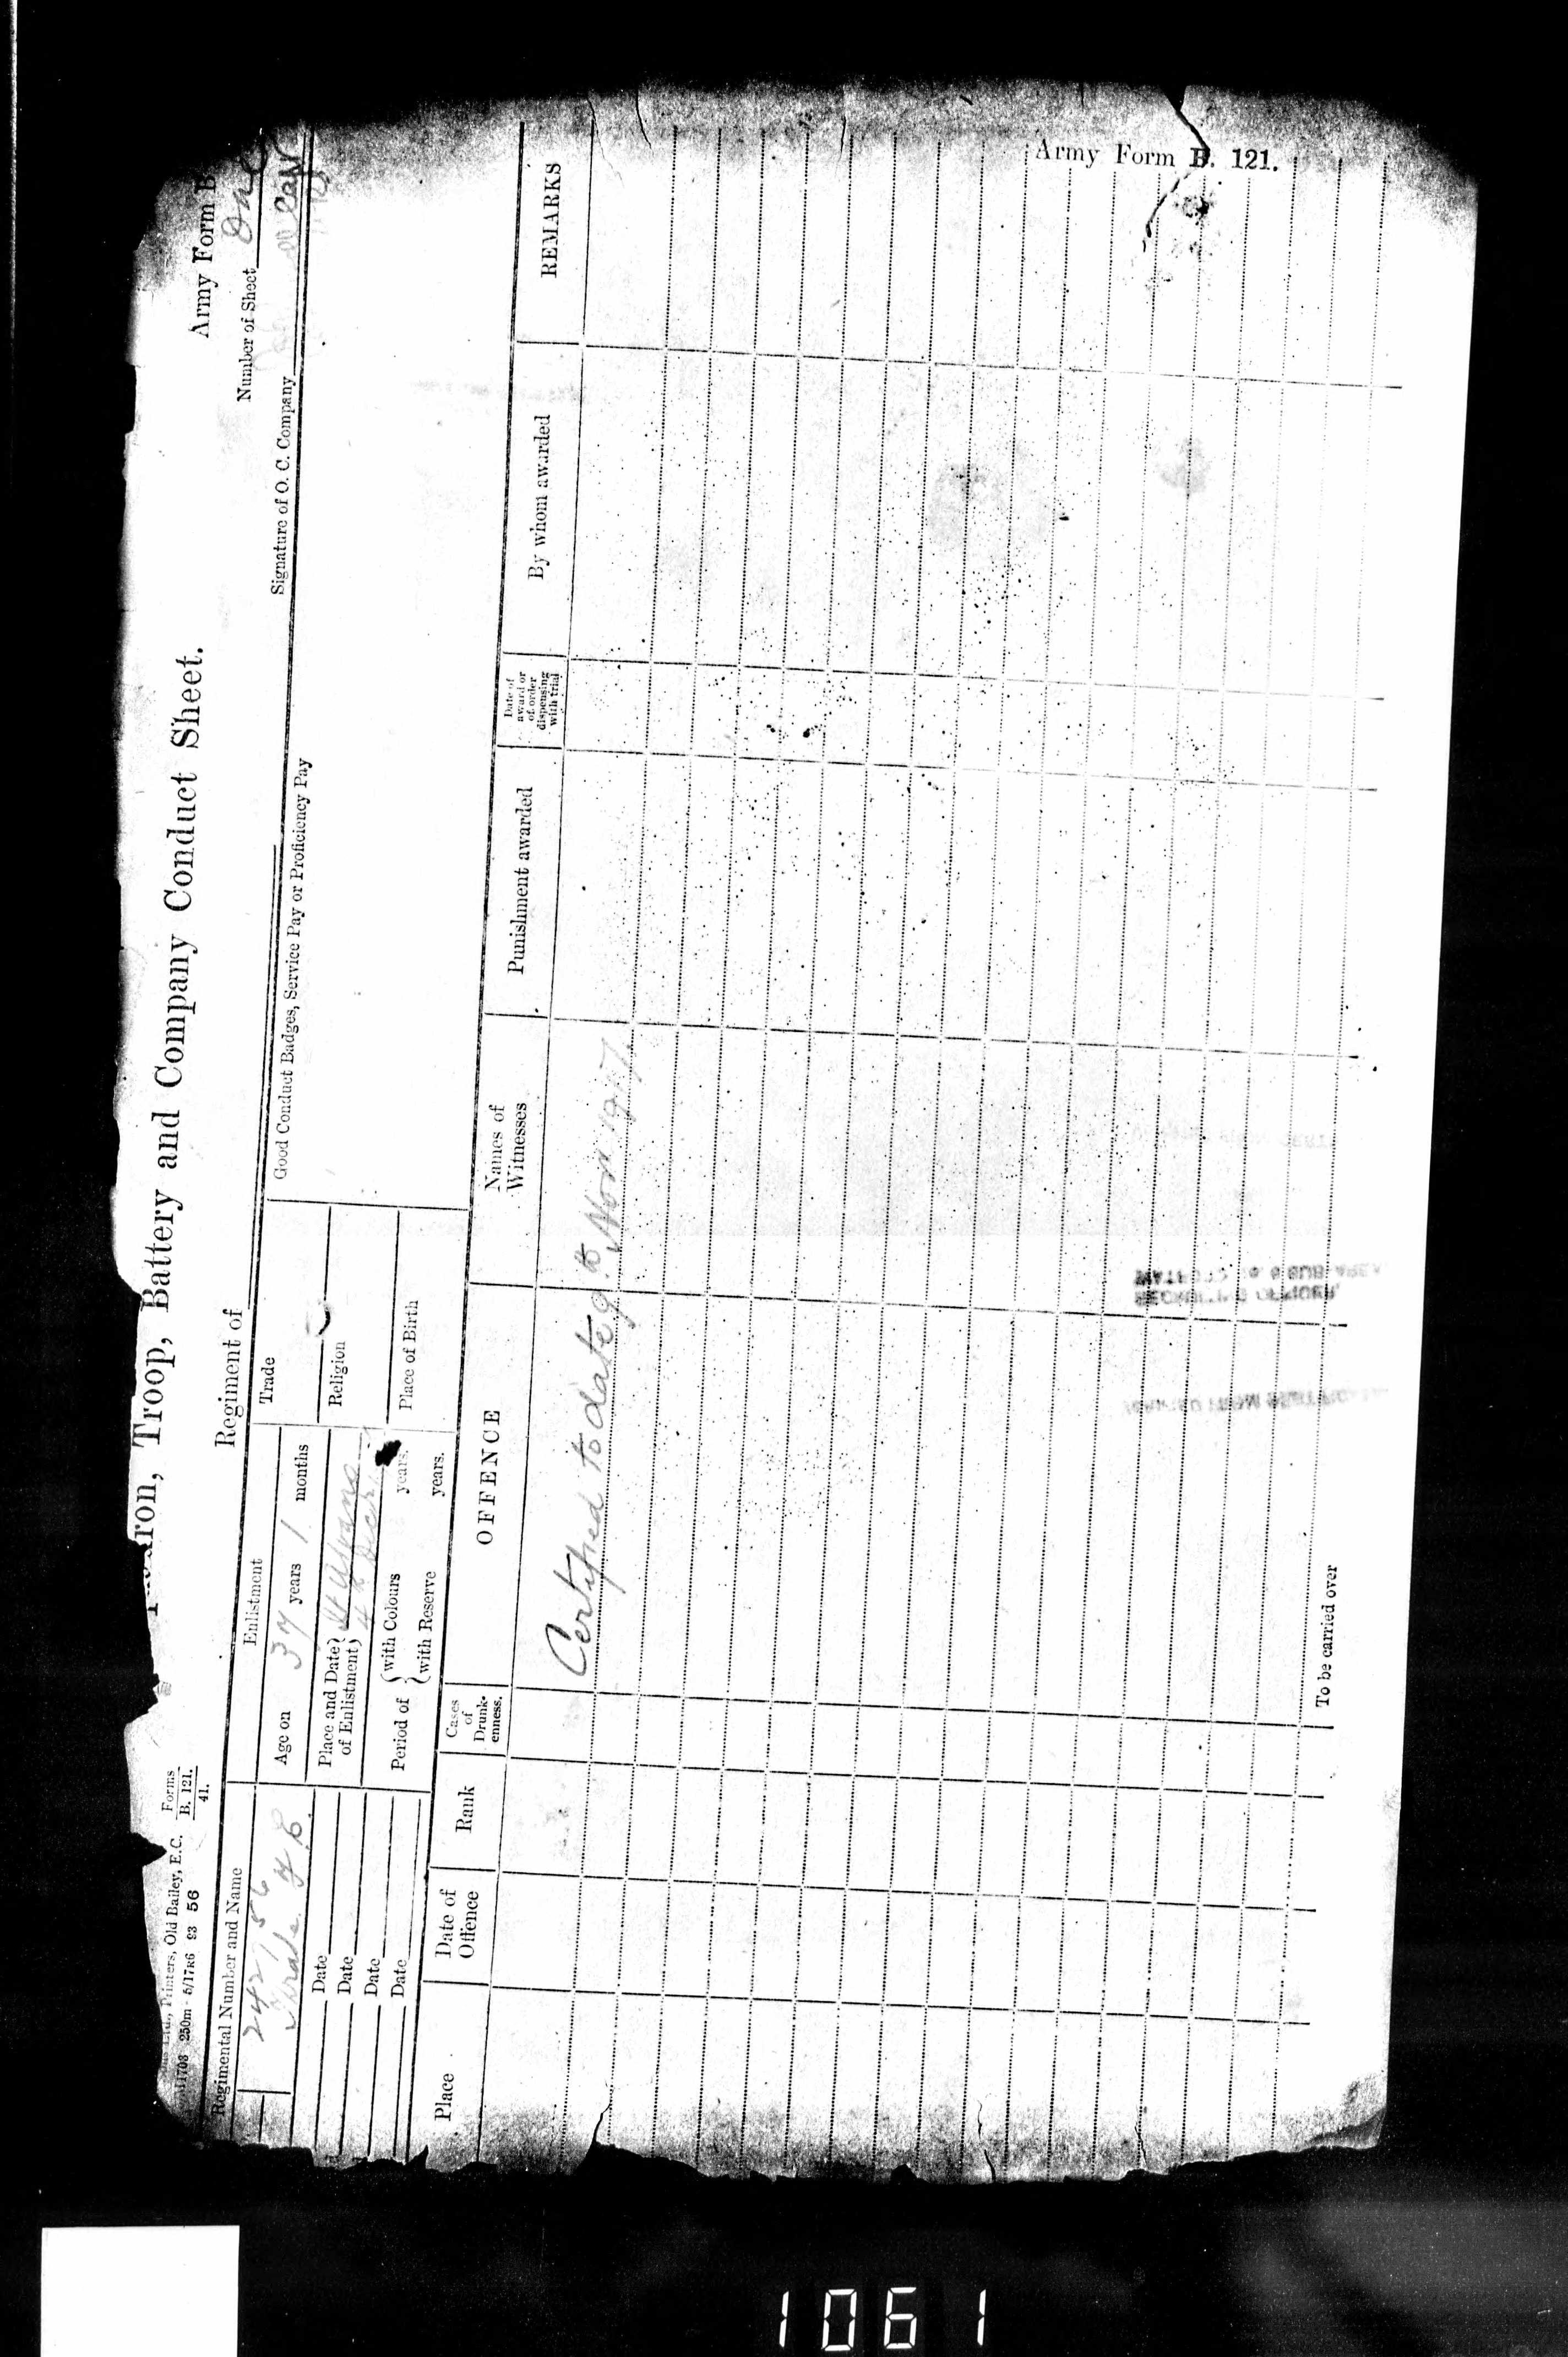 Army Form B. 121.
Army Form B
Number of Sheet One
Squadron, Troop, Battery and Company Conduct Sheet.
Printers, Old Bailey, E.C.
250m 5/17 R6 23 56
Forms
B. 121.
41.
Regiment of
Signature of O. C. Company
Regimental Number and Name
242156
Enlistment
Age on 37 years 1 months
Place and Date
of Enlistment
Period of
with Colours years.
with Reserve years.
Trade
Religion
Place of Birth
Good Conduct Badges, Service Pay or Proficiency Pay
Date
Date
Date
Date
Place
Date of
Offence
Rank
Cases
of
Drunk-
enness.
OFFENCE
Names of
Witnesses
Punishment awarded
Date of
award or
of order
dispensing
with trial
By whom awarded
REMARKS
Certified to date 9th Nov 1917.
To be carried over
1061